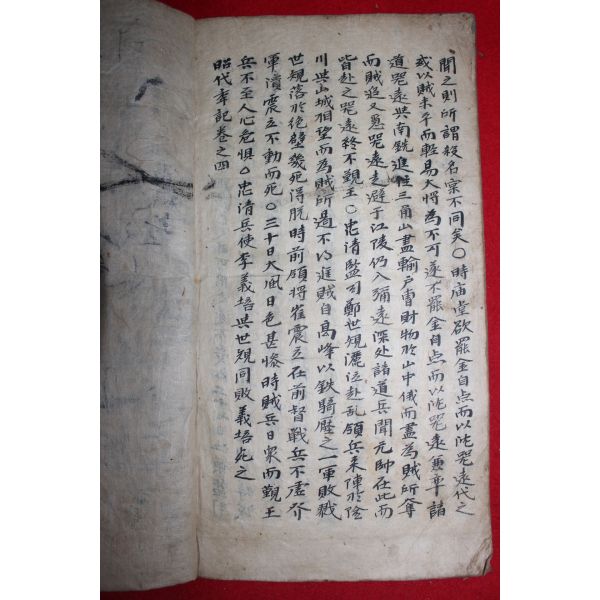 聞之則所謂殺名宲不同矣〇時庙堂欲罷金自点而以沈咒遠代之
或以賊未平而輕易大將為不可遂不罷金自点而以沈咒遠兼率諸
道咒遠与南銑進住三角山盡輸戶曹財物於山中俄而盡為賊所奪
而賊追又急咒遠走避于江陵仍入深處諸道兵聞元帥在此而
皆赴之咒遠終不覲王〇忠清監司鄭世規灑泣赴乱領兵来陣於险
川与山城相望而為賊所遏不以進賊自高峰以鉄騎壓之一軍敗戮
世規落於絶壁幾死得脫時前領將崔震立在前督戰兵不虛介
軍潰震立不動而死〇三十日大風日色甚惨時賊兵日衆而覲王
兵不至人心危惧〇忠清兵使李義培与世規同敗義培死之
昭代年記卷之四